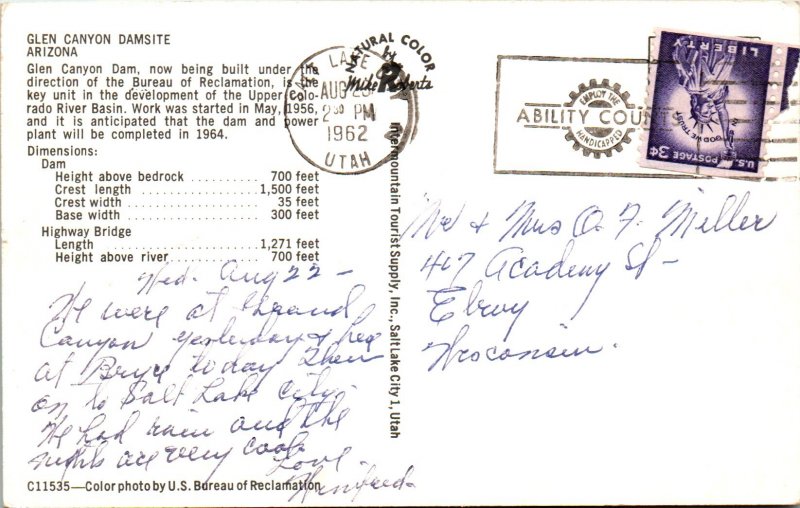 GLEN CANYON DAMSITE
ARIZONA
Glen Canyon Dam, now being built under the
direction of the Bureau of Reclamation, is the
key unit in the development of the Upper Colo-
rado River Basin. Work was started in May, 1956,
and it is anticipated that the dam and power
plant will be completed in 1964.
Dimensions:
Dam
Height above bedrock ........... 700 feet
Crest length ................... 1,500 feet
Crest width .................... 35 feet
Base width ..................... 300 feet
Highway Bridge
Length ......................... 1,271 feet
Height above river.............. 700 feet
Wed. Aug 22 —
We were at Grand
Canyon yesterday &
at Bryce today then
on to Salt Lake City.
We had rain and the
nights are very cool.
Love.
Winifred.
C11535—Color photo by U.S. Bureau of Reclamation
NATURAL COLOR
by
Mike Roberts
Intermountain Tourist Supply, Inc., Salt Lake City 1, Utah
LAKE
AUG
PM
1962
UTAH
ABILITY COUNTS
EMPLOY THE
HANDICAPPED
LIBERTY
IN GOD WE TRUST
U.S. POSTAGE 3¢
Mr & Mrs O. F. Miller
417 Academy St —
Elroy
Wisconsin.